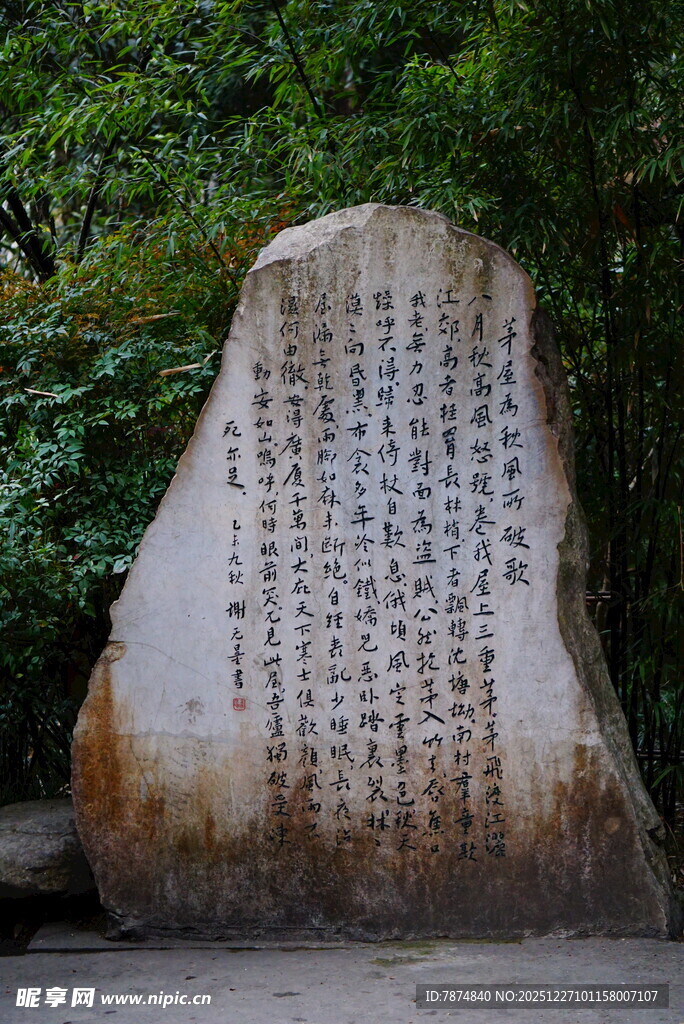 茅屋為秋風所破歌
八月秋高風怒號卷我屋上三重茅茅飛渡江灑
江郊高者挂罥長林梢下者飄轉沈塘坳南村羣童欺
我老無力忍能對面為盜賊公然抱茅入竹去唇焦口
燥呼不得歸來倚杖自歎息俄頃風定雲墨色秋天
漠〻向昏黑布衾多年冷似鐵嬌兒惡卧踏裏裂牀〻
屋漏無乾處雨腳如麻未斷絕自經喪亂少睡眠長夜沾
濕何由徹安得廣廈千萬間大庇天下寒士俱歡顏風雨不
動安如山嗚呼何時眼前突兀見此屋吾廬獨破受凍
死亦足
乙未九秋 謝无量書
昵享网 www.nipic.cn
ID:7874840 NO:20251227101158007107